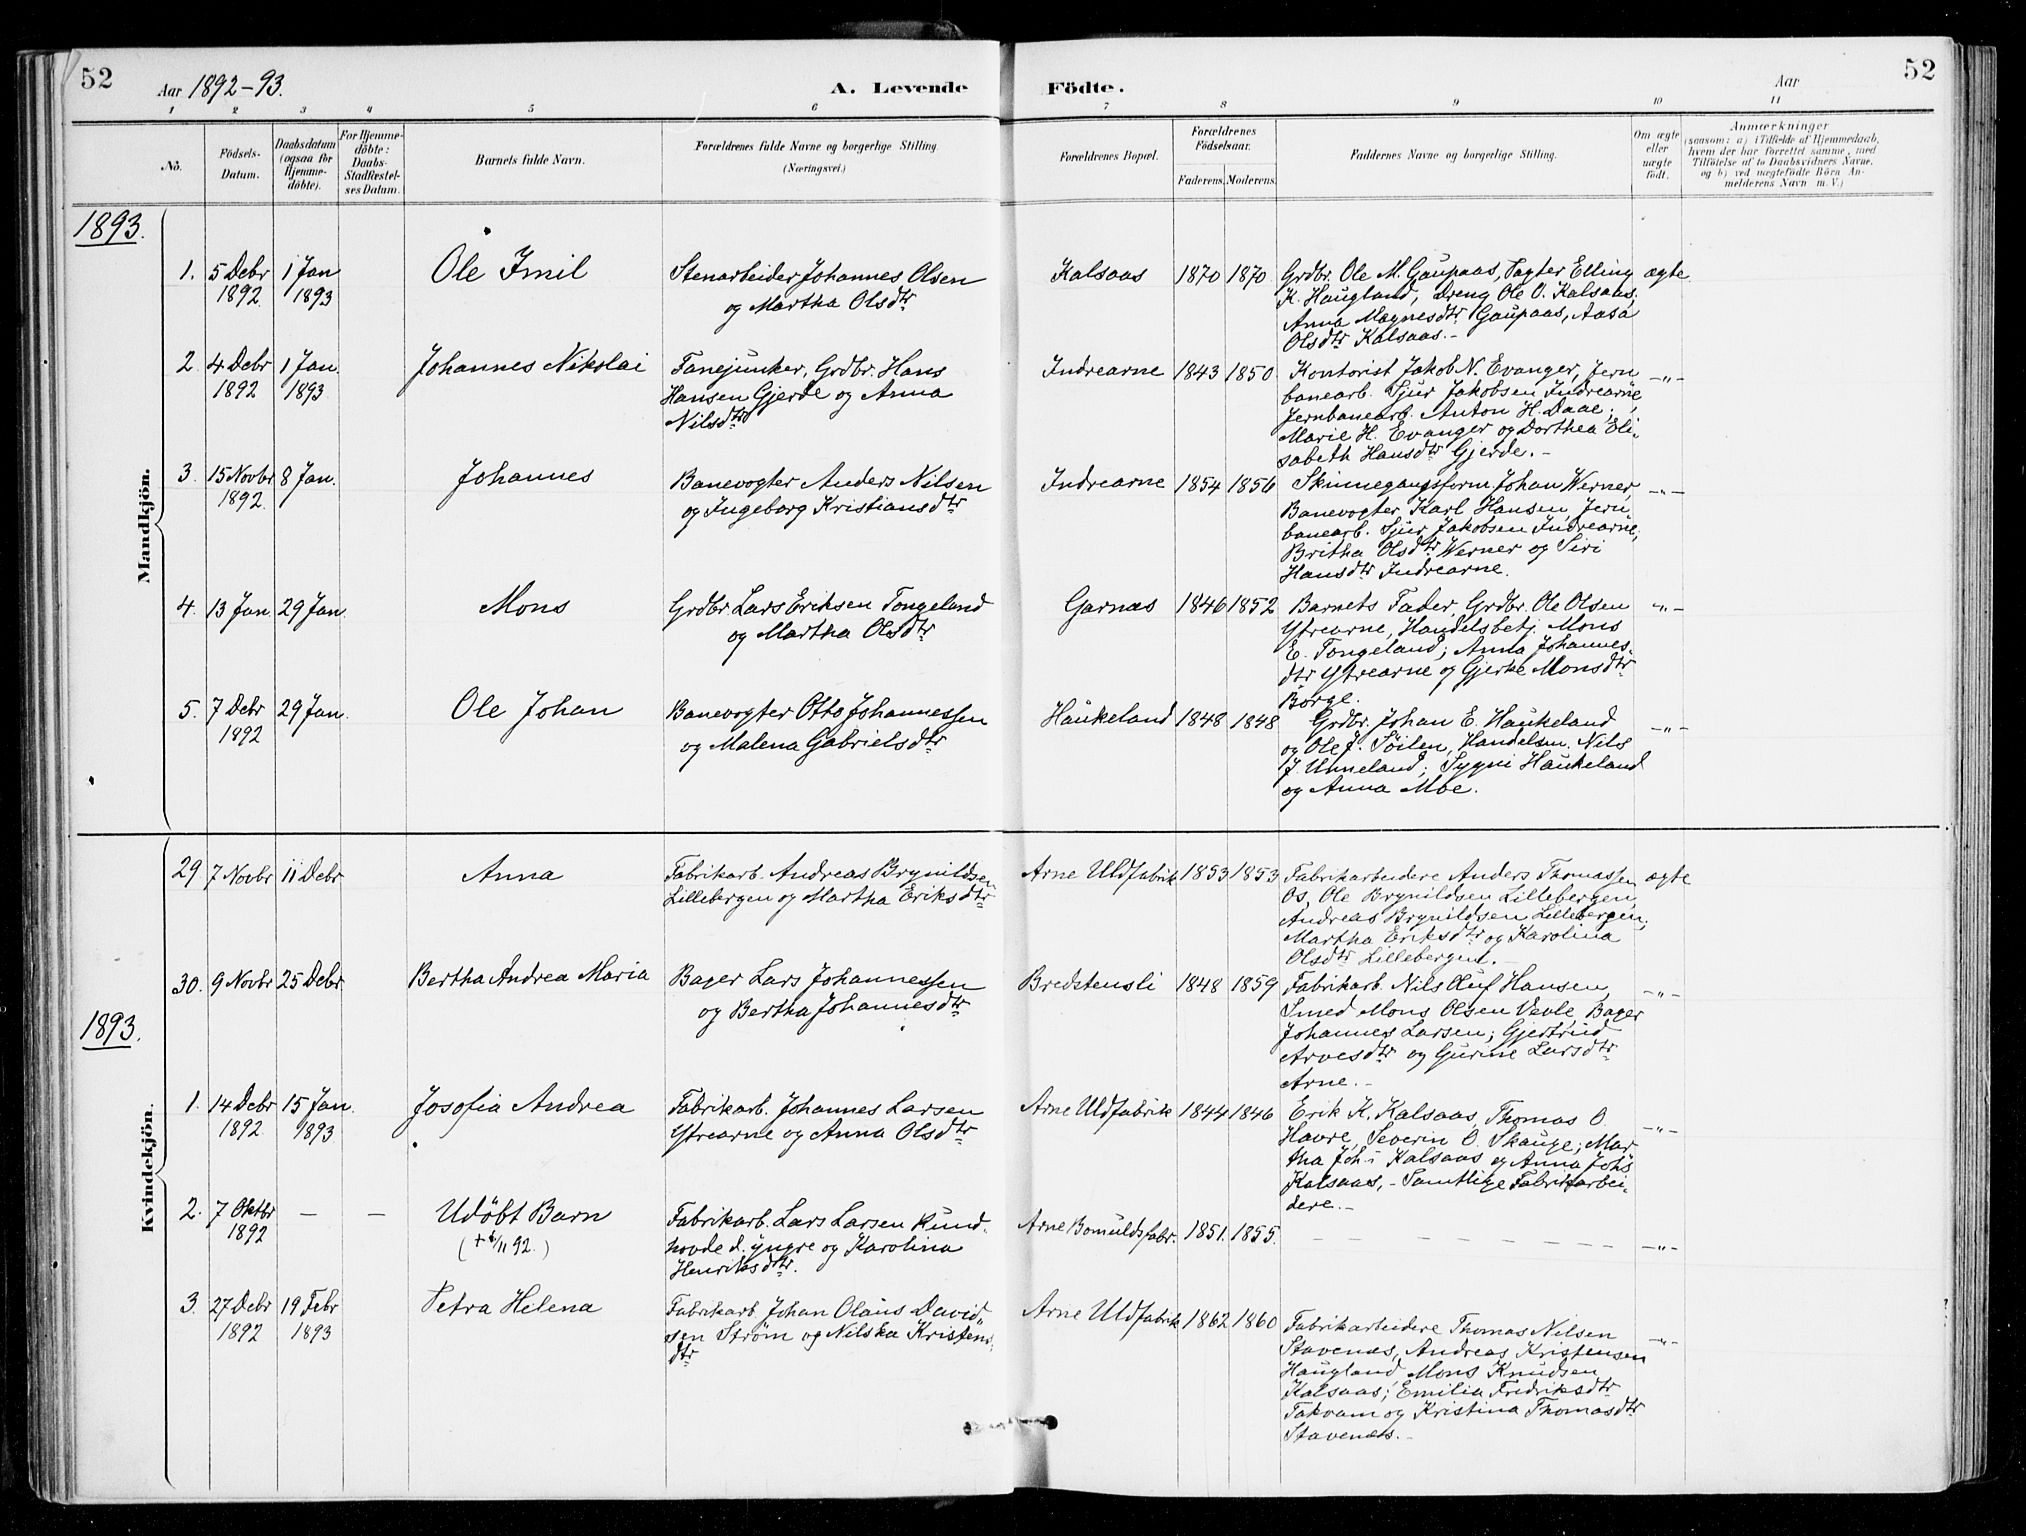 52
Aar 1892-93.
A. Levende
Födte.
Aar
52
1 2 3 4 5 6 7 8 9 10 11
No.
Födsels-Datum.
Daabsdatum (ogsaa for Hjemme-döbte).
For Hjemme-döbte: Daabs-Stadfæstel-ses Datum.
Barnets fulde Navn.
Forældrenes fulde Navne og borgerlige Stilling
(Næringsvei.)
Forældrenes Bopæl.
Forældrenes Födselsaar.
Faderens. Moderens.
Faddernes Navne og borgerlige Stilling.
Om ægte eller uægte födt.
Anmærkninger
(saasom: a) i Tilfælde af Hjemmedaab,
hvem der har forrettet samme, med
Tilföielse af to Daabsvidners Navne,
og b) ved uægtefödte Börn An-
melderens Navn m. V.)
1893.
Mandkjön.
1. 5 Debr 1892 1 Jan 1893 Ole Imil
Stenarbeider Johannes Olsen
og Martha Olsdtr
Kalsaas 1870 1870
Grdbr. Ole M. Gaupaas, Sagter Elling ægte
K. Haugland, Dreng Ole O. Kalsaas,
Anna Magnesdtr Gaupaas, Aasa
Olsdtr Kalsaas.-
2. 4 Debr 1892 1 Jan. 1893 Johannes Nikolai
Fanejunker, Grdbr. Hans
Hansen Gjerde og Anna
Nilsdtr
Indrearne 1843 1850
Kontorist Jakob N. Evanger, Jern -"-
banearb. Sjur Jakobsen Indrearne,
Jernbanearb. Anton H. Daae;
Marie H. Evanger og Dorthea Eli-
sabeth Hansdtr Gjerde.-
3. 15 Novbr 1892. 8 Jan. Johannes
Banevogter Anders Nilsen
og Ingeborg Kristiansdtr
Indrearne 1854 1856
Skinnegangsform. Johan Werner, -"-
Banevogter Karl Hansen, Jern
banearb. Sjur Jakobsen Indrearne;
Britha Olsdtr Werner og Siri
Hansdtr Indrearne.
4. 13 Jan. 29 Jan. Mons
Grdbr Lars Eriksen Tongeland
og Martha Olsdtr
Garnæs 1846 1852
Barnets Fader, Grdbr. Ole Olsen -"-
Ytrearne, Handelsbetj. Mons
E. Tongeland; Anna Johannes-
dtr Ytrearne og Gjerke Monsdtr
Borge.
5. 7 Debr 1892 29 Jan. Ole Johan
Banevogter Otto Johannessen
og Malena Gabrielsdtr
Haukeland 1848 1848
Grdbr. Johan E. Haukeland -"-
og Ole J. Søilen, Handelsm. Nils
J. Unneland; Sygni Haukeland
og Anna Moe.
Kvindekjön.
29 7 Novbr 11 Debr Anna
Fabrikarb. Andreas Brynildsen
Lillebergen og Martha Eriksdtr
Arne Uldfabrik 1853 1853
Fabrikarbeidere Anders Thomassen ægte
Os, Ole Brynildsen Lillebergen,
Andreas Brynildsen Lillebergen;
Martha Eriksdtr og Karolina
Olsdtr Lillebergen.-
30. 9 Novbr 25 Debr Bertha Andrea Maria
Bager Lars Johannessen
og Bertha Johannesdtr
Bredstensli 1848 1859
Fabrikarb. Nils Oluf Hansen, -"-
Smed Mons Olsen Vevle, Bager
Johannes Larsen; Gjertrud
Arvesdtr og Gurine Larsdtr
Arne.-
1893.
1. 14 Debr 1892 15 Jan. 1893 Josofia Andrea
Fabrikarb. Johannes Larsen
Ytrearne og Anna Olsdtr
Arne Uldfabrik 1844 1846
Erik K. Kalsaas, Thomas O. -"-
Havre, Severin O. Skauge; Mar-
tha Joh.s Kalsaas og Anna Johs
Kalsaas,- Samtlige Fabrikarbei-
dere.-
2. 7 Oktbr 1892 - - Udöbt Barn
(+ 6/11 92.)
Fabrikarb. Lars Larsen Rund-
hovde d. yngre og Karolina
Henriksdtr.
Arne Bomuldsfabr. 1851. 1855. - - - - -"-
3. 27 Debr 1892 19 Febr 1893 Petra Helena
Fabrikarb. Johan Olaus David-
sen Strøm og Nilska Kristens-
dtr
Arne Uldfabrik 1862 1860
Fabrikarbeidere Thomas Nilsen -"-
Stavenæs, Andreas Kristensen
Haugland, Mons Knudsen
Kalsaas; Emilia Fredriksdtr
Takvam og Kristina Thomasdtr
Stavenæs.-